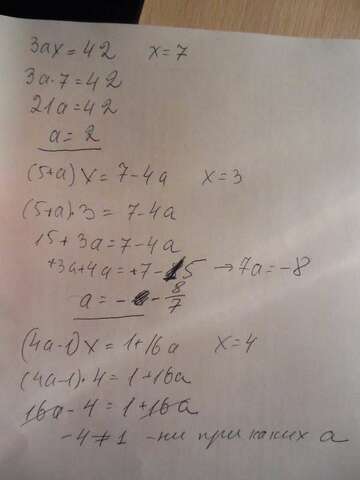 3ax = 42 x = 7
3a·7 = 42
21a = 42
a = 2
(5+a) x = 7-4a x = 3
(5+a)·3 = 7-4a
15+3a = 7-4a
+3a+4a = +7-15 → 7a = -8
a = - 8/7
(4a-1) x = 1+16a x = 4
(4a-1)·4 = 1+16a
16a - 4 = 1+16a
-4 ≠ 1 - ни при каких a